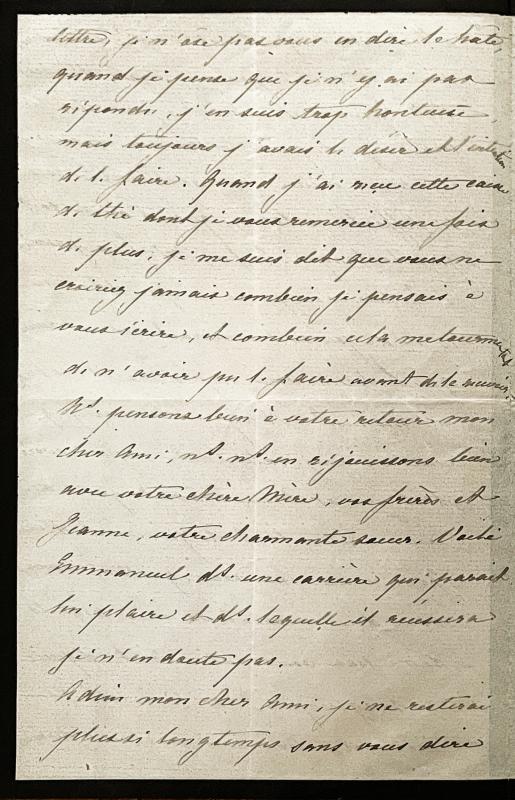 lettre, je n'ose pas vous en dire la date,
quand je pense que je n'y ai pas
répondu, j'en suis trop honteuse,
mais toujours j'avais le désir et l'intention
de le faire. Quand j'ai reçu cette caisse
de thé dont je vous remercie une fois
de plus, je me suis dit que vous ne
croiriez jamais combien je pensais à
vous écrire, et combien cela me tourmentait
de n'avoir pu le faire avant de le recevoir.
Ns. pensons bien à votre retour mon
cher Ami, ns. ns. en réjouissons bien
avec votre chère Mère, vos frères et
Jeanne, votre charmante soeur. Voilà
Emmanuel ds. une carrière qui parait
lui plaire et ds. laquelle il réussira
je n'en doute pas.
Adieu mon cher Ami, je ne resterai
plus si longtemps sans vous dire